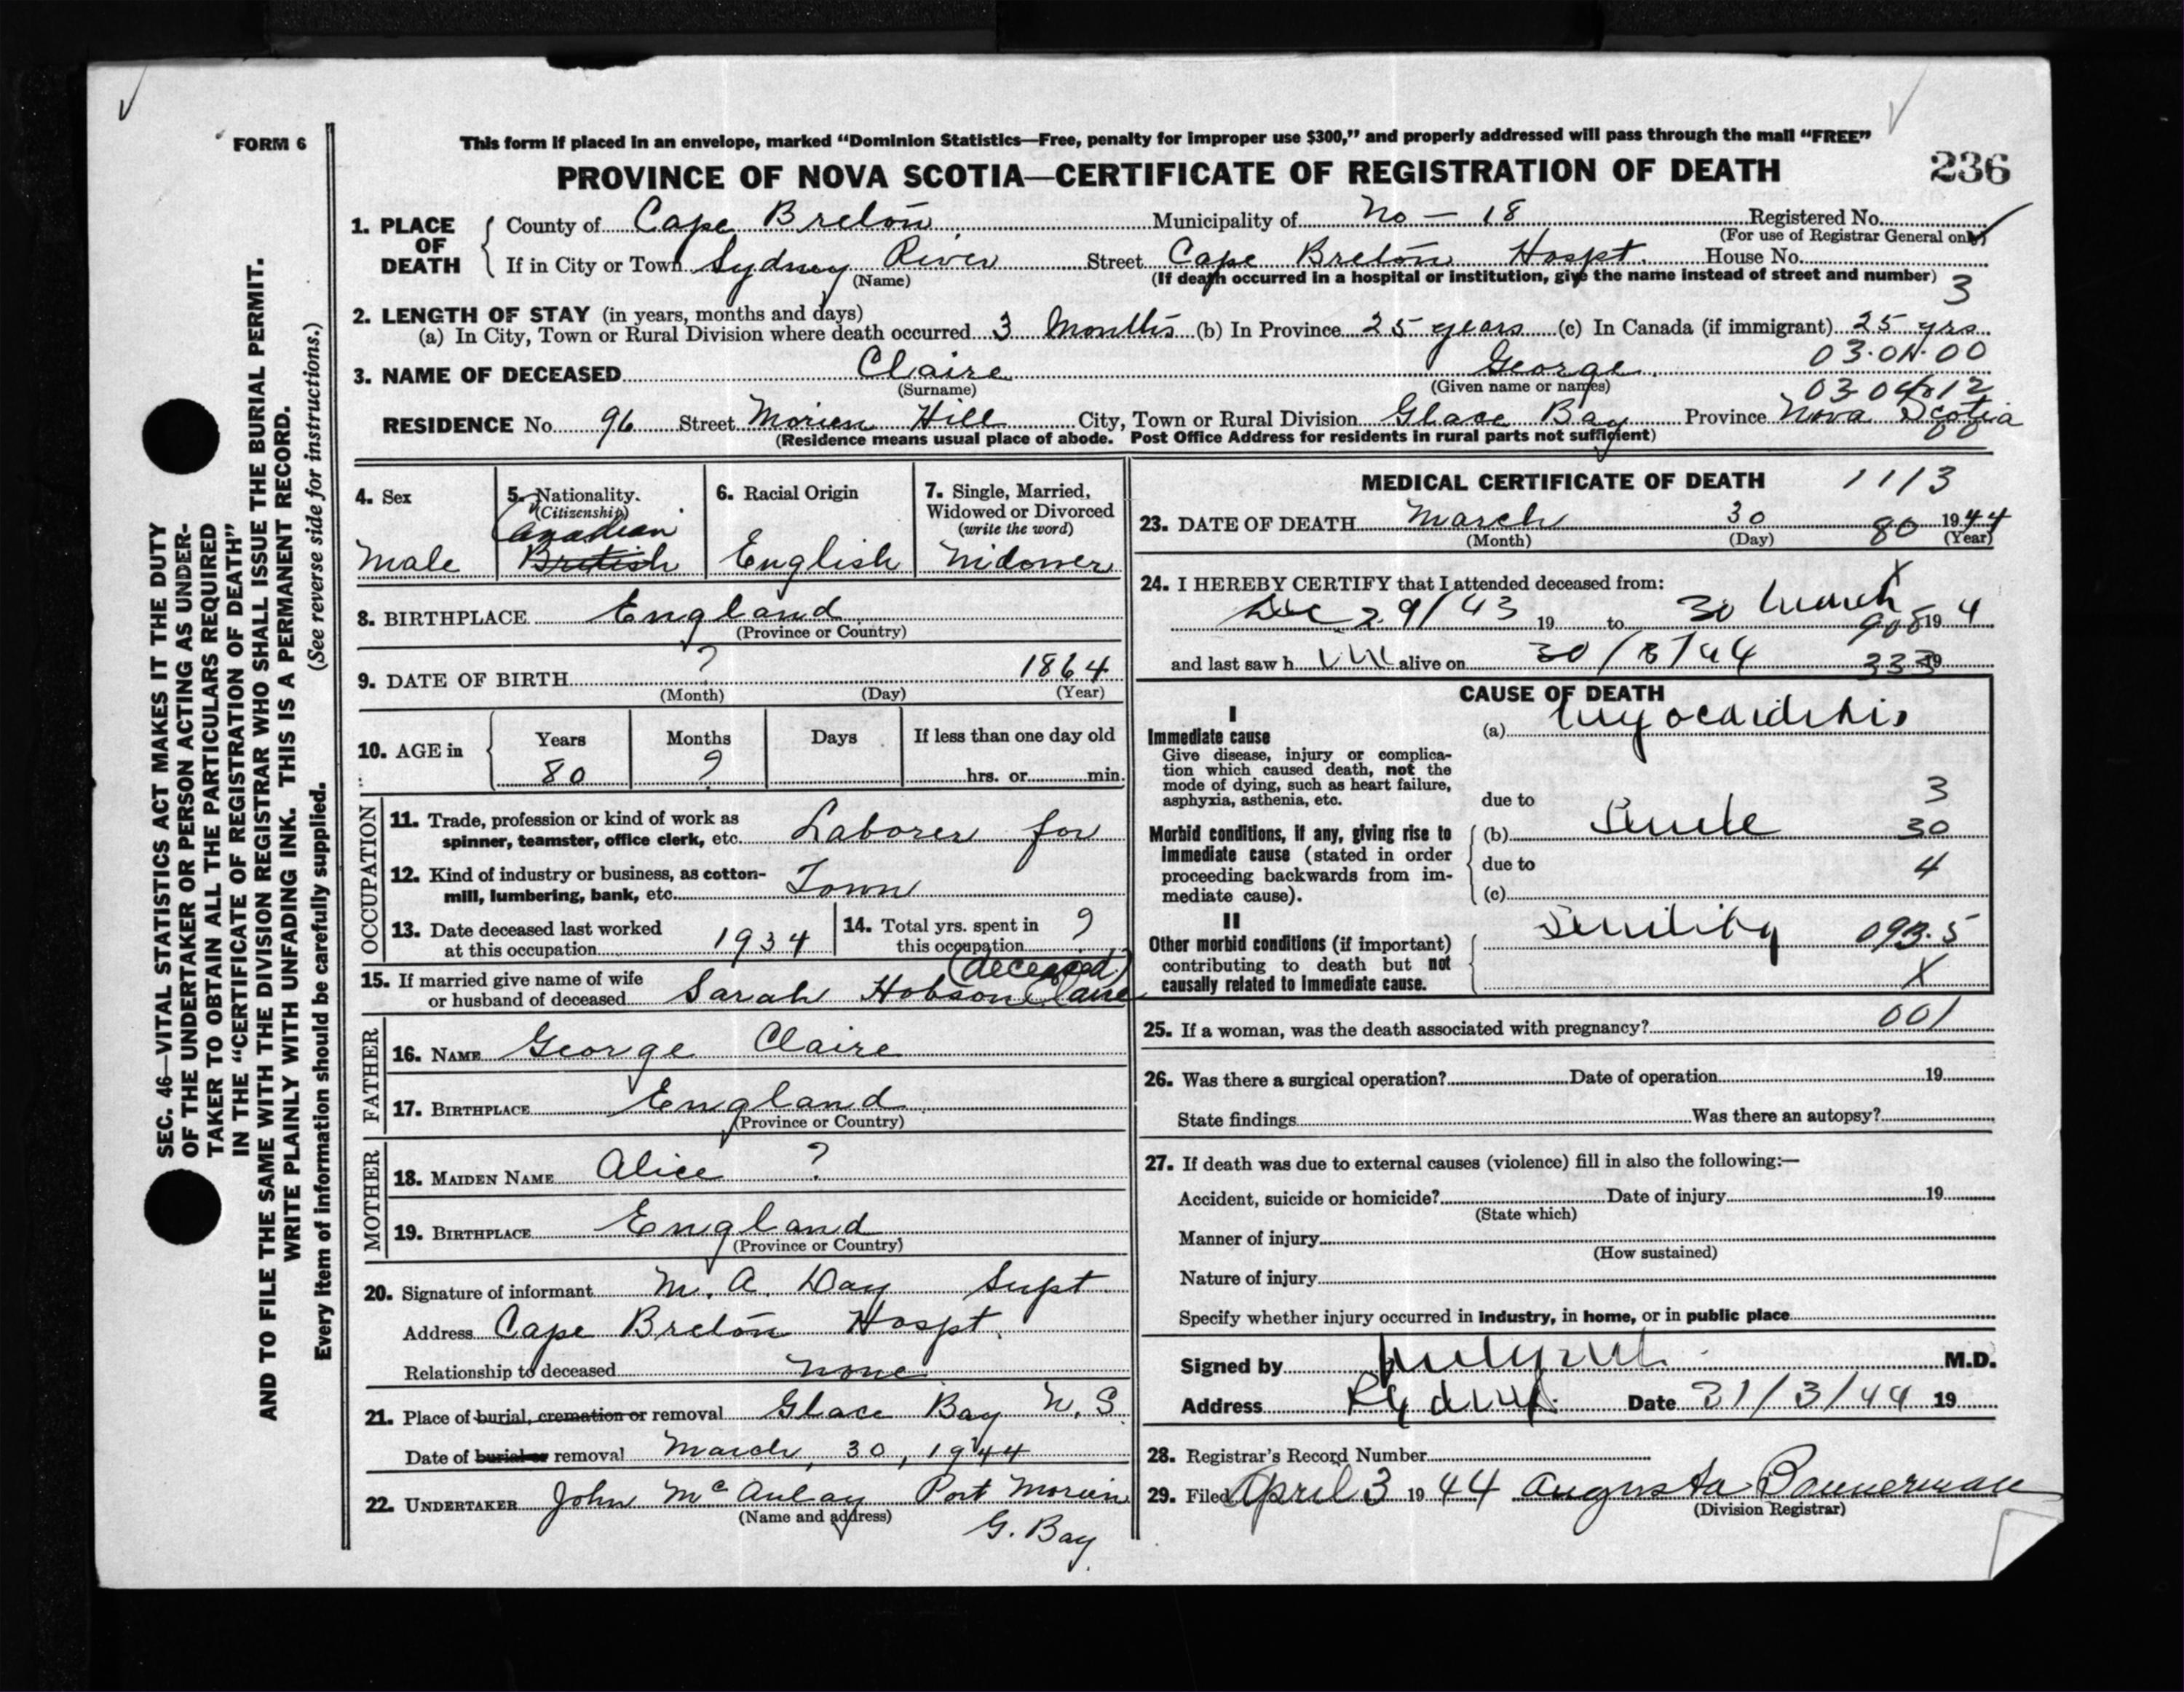 FORM 6
This form if placed in an envelope, marked “Dominion Statistics—Free, penalty for improper use $300,” and properly addressed will pass through the mail “FREE”
PROVINCE OF NOVA SCOTIA—CERTIFICATE OF REGISTRATION OF DEATH
236
1. PLACE OF DEATH { County of Cape Breton Municipality of No – 18 Registered No.
(For use of Registrar General only)
If in City or Town Sydney River Street Cape Breton Hospt. House No.
(Name) (If death occurred in a hospital or institution, give the name instead of street and number)
3
2. LENGTH OF STAY (in years, months and days)
(a) In City, Town or Rural Division where death occurred 3 Months (b) In Province 25 years (c) In Canada (if immigrant) 25 yrs
03.01.00
3. NAME OF DECEASED Claire George
(Surname) (Given name or names)
RESIDENCE No. 96 Street Morien Hill City, Town or Rural Division Glace Bay Province Nova Scotia
(Residence means usual place of abode. Post Office Address for residents in rural parts not sufficient)
4. Sex
Male
5. Nationality (Citizenship)
Canadian
British
6. Racial Origin
English
7. Single, Married, Widowed or Divorced (write the word)
Widower
8. BIRTHPLACE England
(Province or Country)
9. DATE OF BIRTH ? 1864
(Month) (Day) (Year)
10. AGE in { Years Months Days If less than one day old
80 ? hrs. or min.
OCCUPATION
11. Trade, profession or kind of work as
spinner, teamster, office clerk, etc. Laborer for
12. Kind of industry or business, as cotton-
mill, lumbering, bank, etc. Town
13. Date deceased last worked
at this occupation 1934
14. Total yrs. spent in
this occupation ?
15. If married give name of wife (deceased)
or husband of deceased Sarah Hobson Claire
FATHER
16. NAME George Claire
17. BIRTHPLACE England
(Province or Country)
MOTHER
18. MAIDEN NAME Alice ?
19. BIRTHPLACE England
(Province or Country)
20. Signature of informant M. A. Day Supt
Address Cape Breton Hospt.
Relationship to deceased none
21. Place of burial, cremation or removal Glace Bay N. S.
Date of burial or removal March, 30, 1944
22. UNDERTAKER John McAulay Port Morien
(Name and address) G. Bay
MEDICAL CERTIFICATE OF DEATH 1113
23. DATE OF DEATH March 30 80 1944
(Month) (Day) (Year)
24. I HEREBY CERTIFY that I attended deceased from: X
Dec 29/43 19 to 30 March 19 4
and last saw h im alive on 30/3/44 19
CAUSE OF DEATH
I
Immediate cause (a) Myocarditis
Give disease, injury or complica-
tion which caused death, not the
mode of dying, such as heart failure,
asphyxia, asthenia, etc.
due to 3
Morbid conditions, if any, giving rise to
immediate cause (stated in order
proceeding backwards from im-
mediate cause).
(b) Senile 30
due to 4
(c)
II
Other morbid conditions (if important)
contributing to death but not
causally related to immediate cause.
Senility 093.5
X
25. If a woman, was the death associated with pregnancy? 001
26. Was there a surgical operation? Date of operation 19
State findings Was there an autopsy?
27. If death was due to external causes (violence) fill in also the following:—
Accident, suicide or homicide? Date of injury 19
(State which)
Manner of injury
(How sustained)
Nature of injury
Specify whether injury occurred in industry, in home, or in public place
Signed by M.D.
Address Date 31/3/44 19
28. Registrar's Record Number
29. Filed April 3 1944 Augusta Bannerman
(Division Registrar)
SEC. 46—VITAL STATISTICS ACT MAKES IT THE DUTY
OF THE UNDERTAKER OR PERSON ACTING AS UNDER-
TAKER TO OBTAIN ALL THE PARTICULARS REQUIRED
IN THE “CERTIFICATE OF REGISTRATION OF DEATH”
AND TO FILE THE SAME WITH THE DIVISION REGISTRAR WHO SHALL ISSUE THE BURIAL PERMIT.
WRITE PLAINLY WITH UNFADING INK. THIS IS A PERMANENT RECORD.
Every item of information should be carefully supplied. (See reverse side for instructions.)